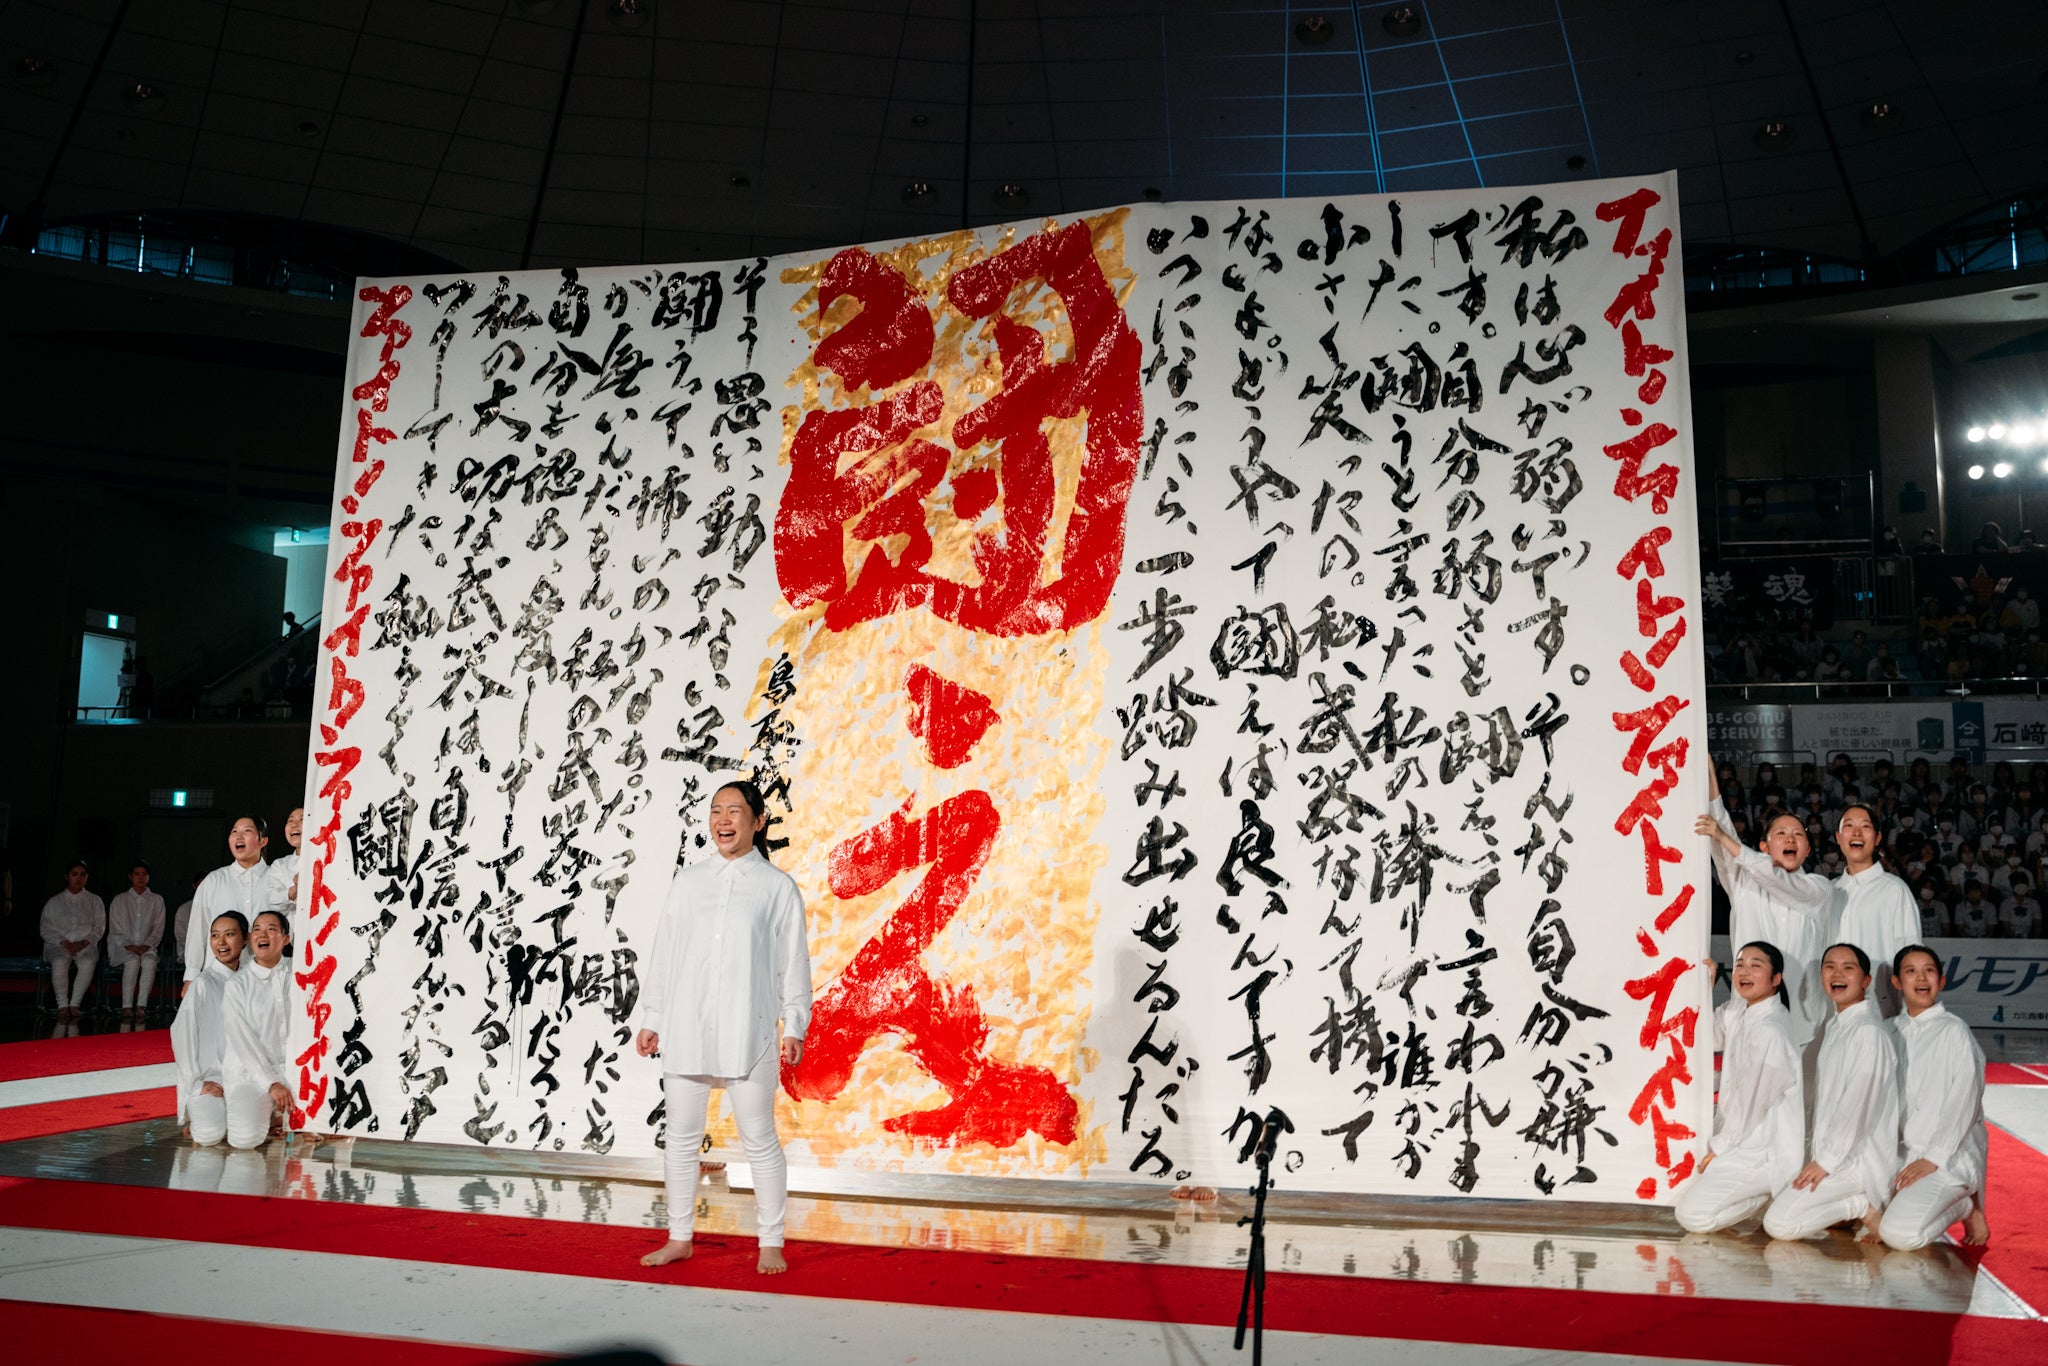 ファイト!ファイト!ファイト!ファイト!
私は心が弱いです。そんな自分が嫌い
です。自分の弱さと闘えって言われま
した。闘うと言った私の隣りで、誰かが
小さく笑ったの。私、武器なんて持って
ないよ。どうやって闘えば良いんですか。
いつになったら、一歩踏み出せるんだろ。
闘え
鳥取城北
そう思い、動かない足を
闘うって、怖いのかなぁ。だって、闘ったこと
が無いんだもん。私の武器って何だろう。
自分を認め、愛し、そして信じること。
私の大切な武器は、自信なんだ
てきた。私らしく、闘ってくるね。
ファイト!ファイト!ファイト!ファイト!
魂
BE-GOMU
E SERVICE
BAMBOO AIR
紙で出来た、
人と環境に優しい脱臭機
石﨑
ルモア
カミ商事